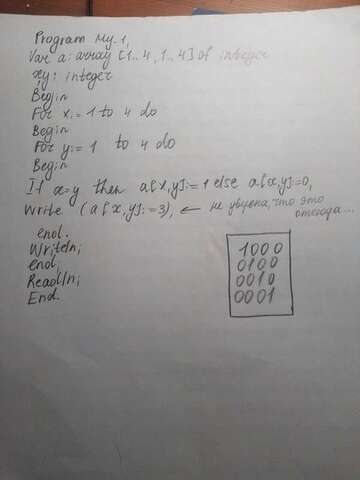 Program My_1,
Var a: array [1..4, 1..4] of integer
xy: integer
Begin
For x:=1 to 4 do
Begin
For y:=1 to 4 do
Begin
If x=y then a[x,y]:=1 else a[x,y]:=0,
Write (a[x,y]:=3), ← не уверена, что это отсюда...
end.
Writeln;
end;
Readln;
End.
1000
0100
0010
0001